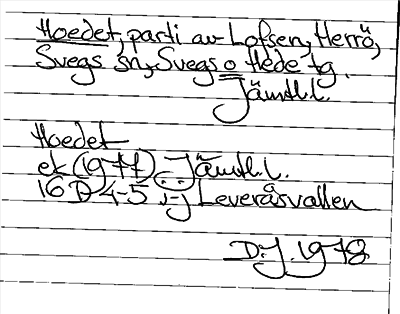 Hoedet, parti av Lofsen, Herrö,
Svegs sn, Svegs o Hede tg.
Jämtl.l.
Hoedet
ek (1977) Jämtl.l.
16 D 4-5 i-j Leveråsvallen
D.J. 1978